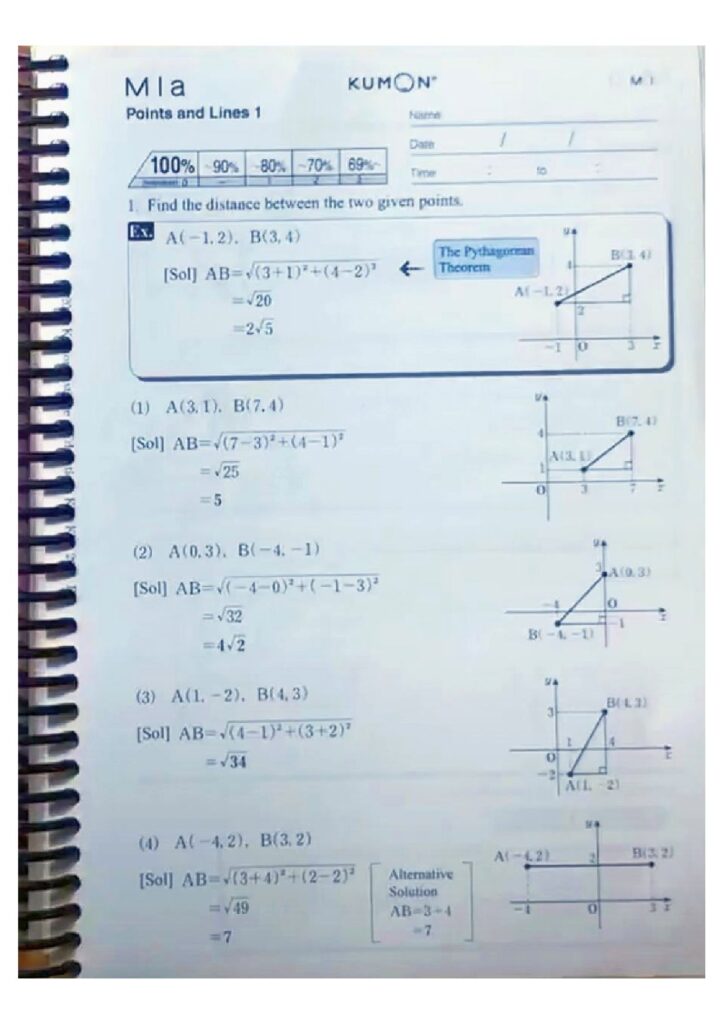 M1a
KUMON
Points and Lines 1
Name
Date / /
Time : to :
100% ~90% ~80% ~70% 69%~
1. Find the distance between the two given points.
Ex. A(−1, 2), B(3, 4)
[Sol] AB=√(3+1)²+(4−2)²
=√20
=2√5
The Pythagorean
Theorem
y
4
B(3, 4)
A(−1, 2)
2
−1 O 3 x
(1) A(3, 1), B(7, 4)
[Sol] AB=√(7−3)²+(4−1)²
=√25
=5
y
4
B(7, 4)
A(3, 1)
1
O 3 7 x
(2) A(0, 3), B(−4, −1)
[Sol] AB=√(−4−0)²+(−1−3)²
=√32
=4√2
y
3 A(0, 3)
−4 O x
−1
B(−4, −1)
(3) A(1, −2), B(4, 3)
[Sol] AB=√(4−1)²+(3+2)²
=√34
y
3
B(4, 3)
1 4
O x
−2
A(1, −2)
(4) A(−4, 2), B(3, 2)
[Sol] AB=√(3+4)²+(2−2)²
=√49
=7
Alternative
Solution
AB=3+4
=7
y
A(−4, 2) 2 B(3, 2)
−4 O 3 x